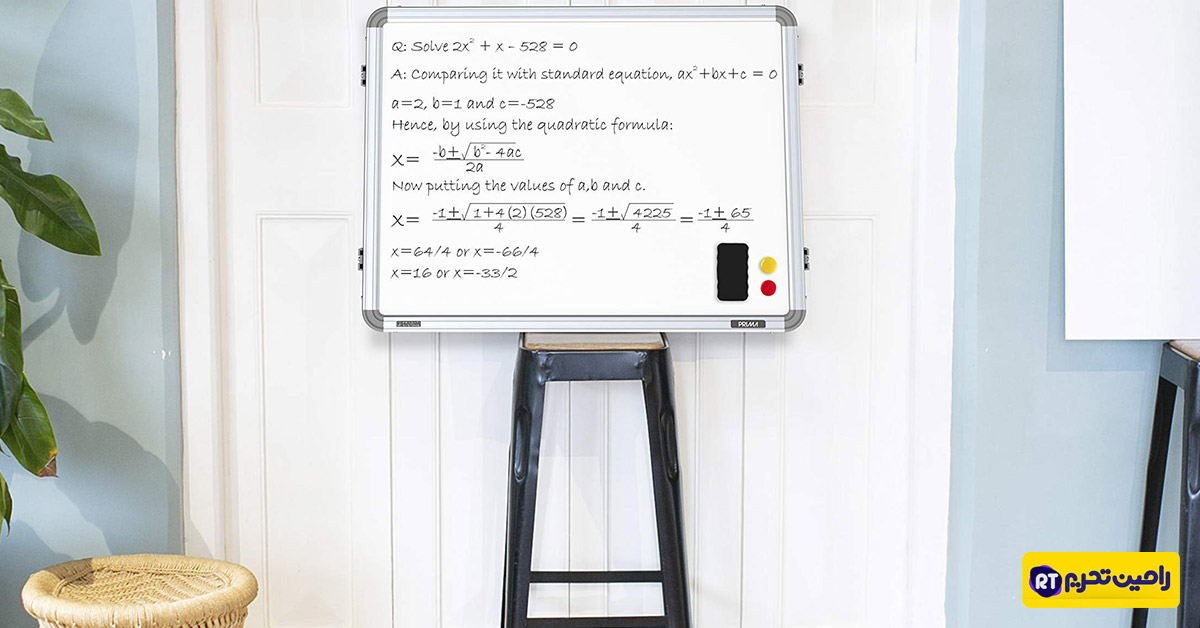 Q: Solve 2x² + x - 528 = 0
A: Comparing it with standard equation, ax²+bx+c = 0
a=2, b=1 and c=-528
Hence, by using the quadratic formula:
x= -b±√b²-4ac / 2a
Now putting the values of a,b and c.
x= -1±√1+4(2)(528) / 4 = -1±√4225 / 4 = -1± 65 / 4
x=64/4 or x=-66/4
x=16 or x=-33/2
PRIMA
RT رامین تحریم